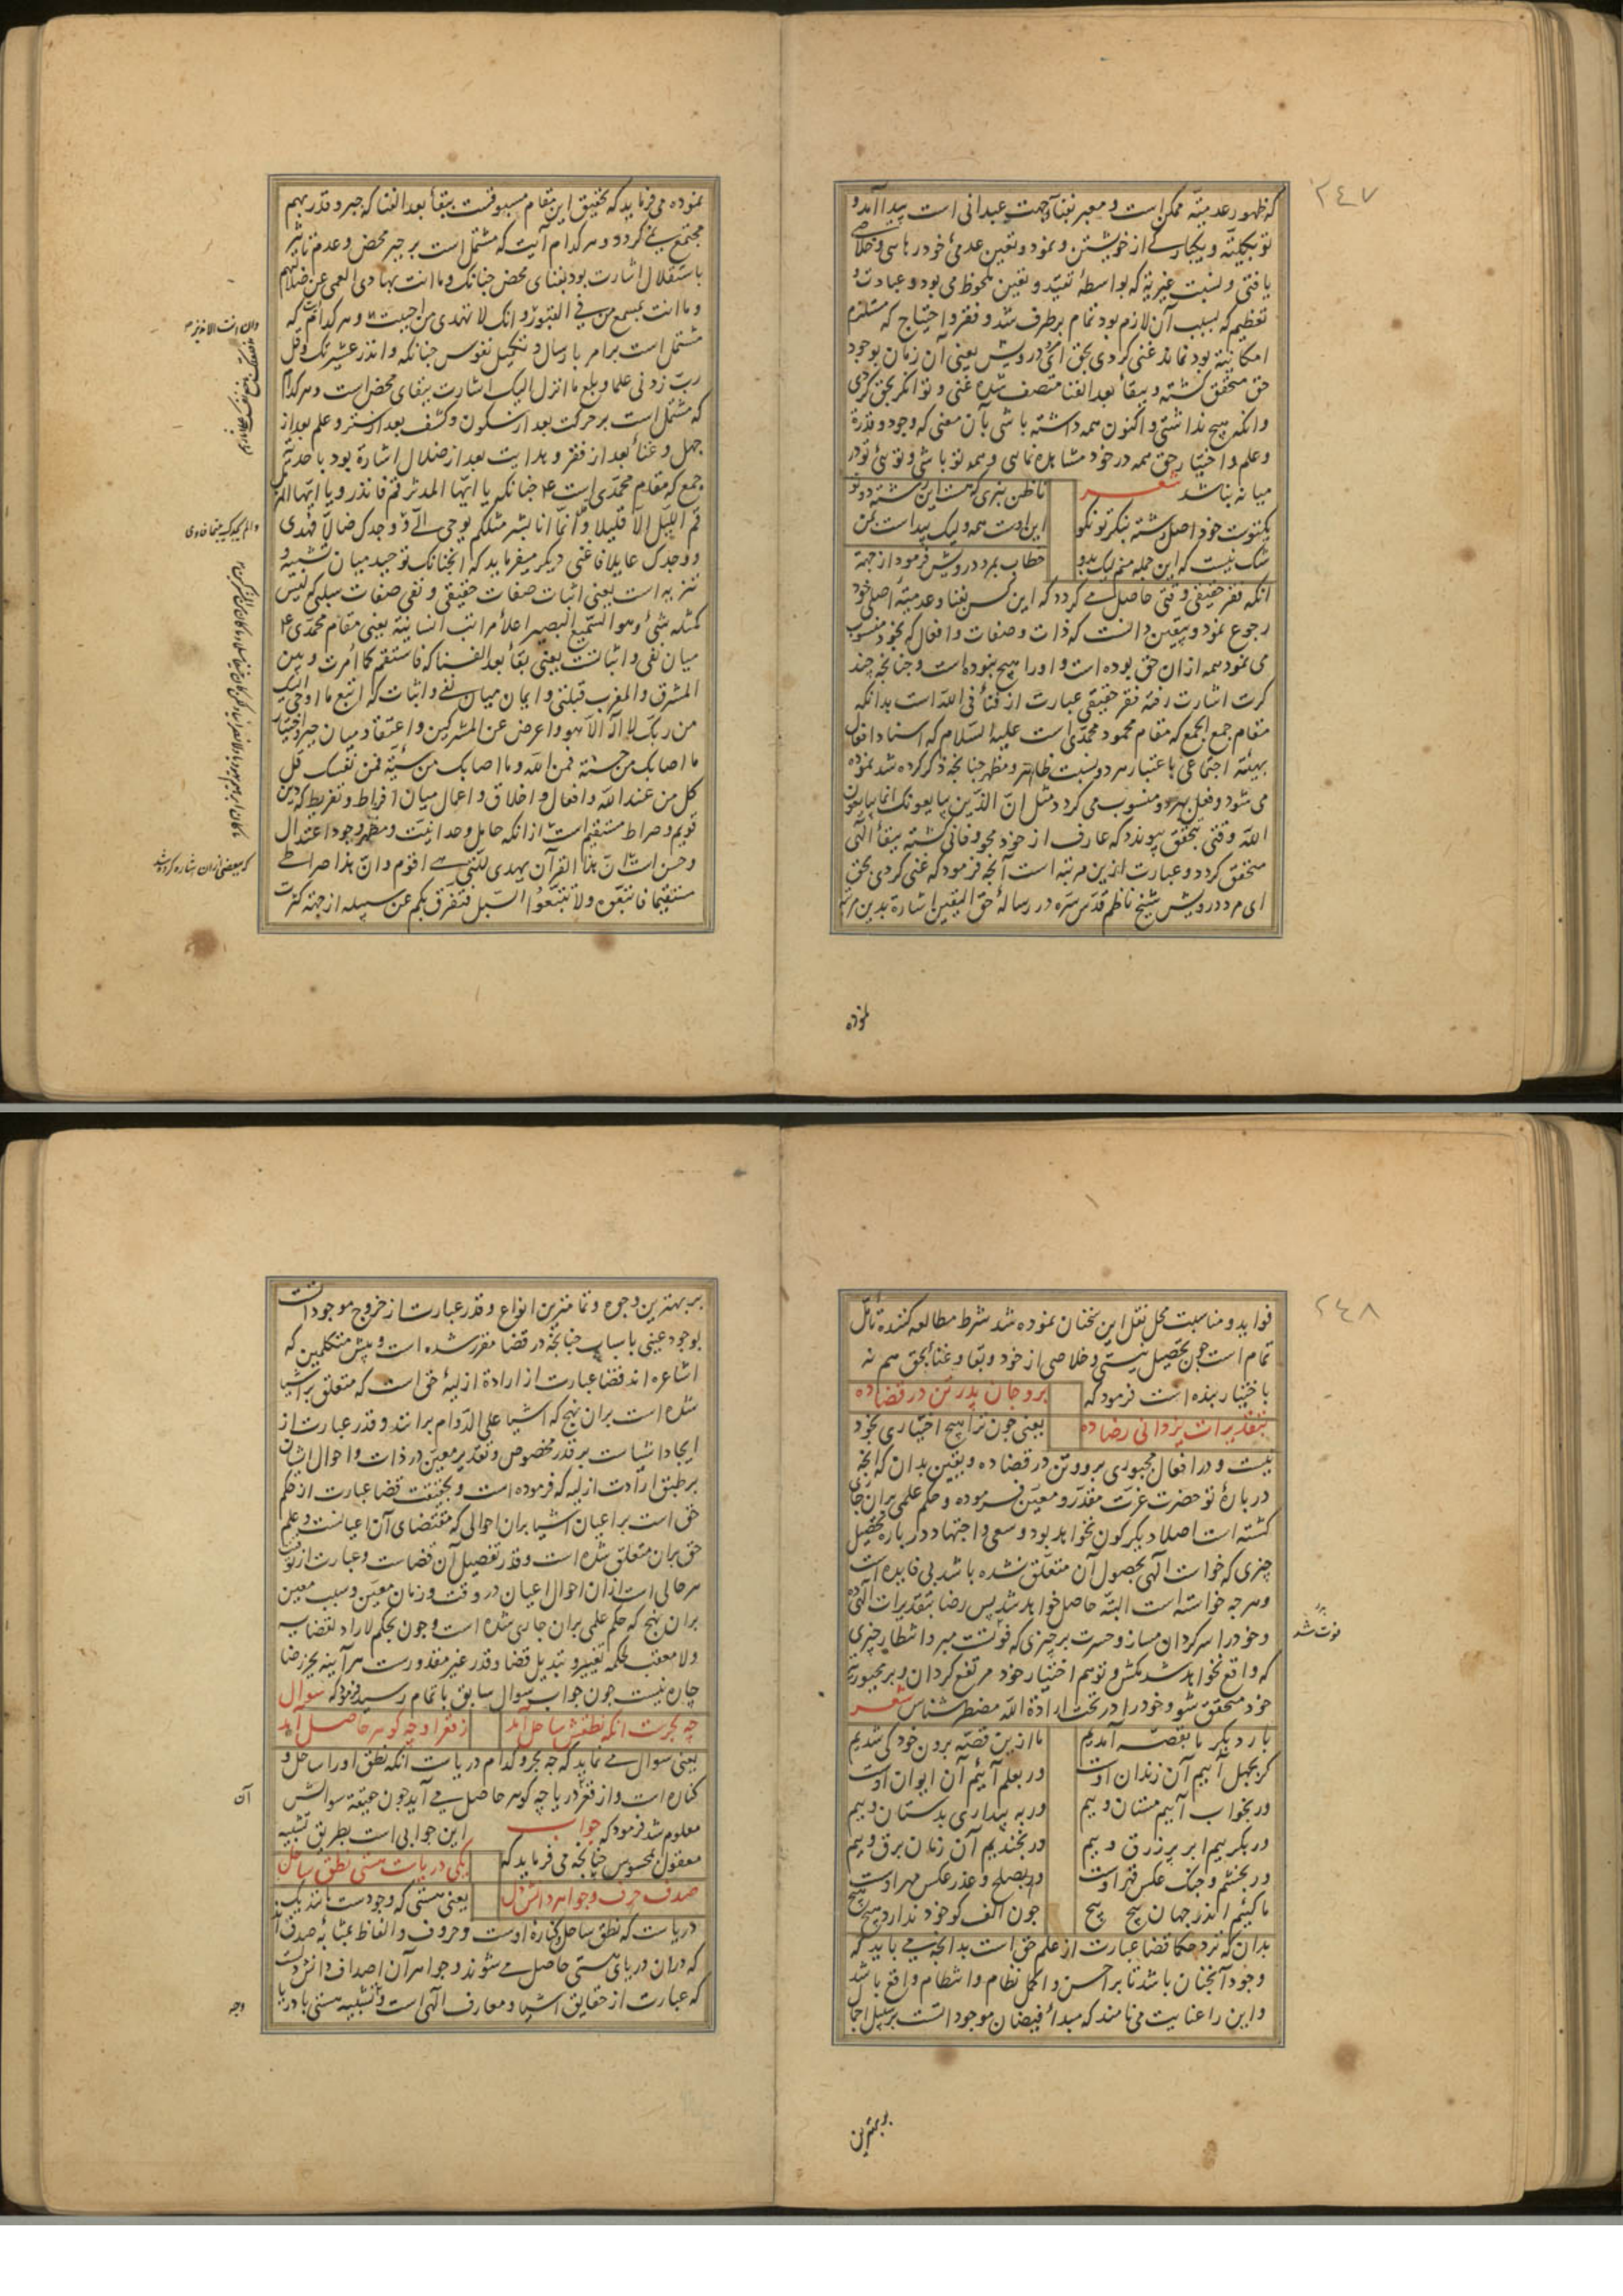 ٢٤٧
که ظهور عدمیته ممکن است و معبر بفنا و جهت عبدانی است پیدا آمد و
تو بکلیته و یکبارگی از خویشتن و نمود و تعین عدمی خود رهایی و خلاصی
یافتی و نسبت غیریه که بواسطهٔ تقید و تعین ملحوظ می بود و عبادت و
تعظیم که بسبب آن لازم بود تمام برطرف شد و فقر و احتیاج که مستلزم
امکانیته بود نماند غنی کردی بحق ای درویش یعنی آن زمان بوجود
حق متحقق کشته و ببقاء بعد الفنا متصف شده غنی و توانکر بحق کردی
وانکه هیچ نداشتی و اکنون همه داشته باشی بآن معنی که وجود و قدرة
وعلم و اختیار حق همه در خود مشاهده نمایی و همه تو باشی و توئی تو در
میانه نباشد شعر تا ظن نبری که هست این رشته دوتو
یکتوست خود اصل رشته بنکر تو نکو این اوست همه ولیک پیداست بمن
شک نیست که این جمله منم لیک بدو خطاب بمرد درویش فرمود از جهة
انکه فقر حقیقی وقتی حاصل می کردد که این کس بفنا و عدمیته اصلی خود
رجوع نمود و بیقین دانست که ذات و صفات و افعال که بخود منسوب
می نمود همه از ان حق بوده است و او را هیچ نبوده است و چنانچه چند
کرت اشارت رفته فقر حقیقی عبارت از فنا فی الله است بدانکه
مقام جمع الجمع که مقام محمود محمدی است علیه السلام که اسناد افعال
بهیئة اجتماعی باعتبار هر دو نسبت ظاهر و مظهر چنانچه ذکر کرده شد نموده
می شود و فعل بهر دو منسوب می کردد مثل ان الذین یبایعونک انما یبایعون
الله وقتی بتحقق پیوندد که عارف از خود محو و فانی کشته ببقاء الهی
متحقق کردد و عبارت ازین مرتبه است آنچه فرمود که غنی کردی بحق
ای مرد درویش شیخ ناظم قدس سره در رسالهٔ حق الیقین اشارة بدین مرتبه
نموده
نموده می فرماید که تحقیق این مقام مسبوقست ببقاء بعد الفنا که جبر و قدر بهم
مجتمع می کردد و هر کدام آیت که مشتمل است بر جبر محض و عدم تاثیر
باستقلال اشارت بود بفنای محض چنانک وما انت بهادی العمی عن ضلالتهم
وما انت بمسمع من فی القبور و انک لا تهدی من احببت و هر کدام که
مشتمل است بر امر بارسال و تکمیل نفوس چنانکه وانذر عشیرتک وقل
رب زدنی علما وبلغ ما انزل الیک اشارت ببقای محض است و هر کدام
که مشتمل است بر حرکت بعد از سکون و کشف بعد از ستر و علم بعد از
جهل و غناء بعد از فقر و هدایت بعد از ضلال اشارة بود باحدیته
جمع که مقام محمدی است چنانکه یا ایها المدثر قم فانذر ویا ایها المزمل
قم اللیل الا قلیلا وانما انا بشر مثلکم یوحی الی ووجدک ضالا فهدی
ووجدک عایلا فاغنی دیکر میفرماید که انچنانک توحید میان تشبیه و
تنزیه است یعنی اثبات صفات حقیقی و نفی صفات سلبی که لیس
کمثله شیء وهو السمیع البصیر اعلا مراتب انسانیته یعنی مقام محمدی
میان نفی و اثباتست یعنی بقاء بعد الفنا که فاستقم کما امرت وبین
المشرق والمغرب قبلتی وایمان میان نفی و اثبات که اتبع ما اوحی الیک
من ربک لا اله الا هو واعرض عن المشرکین و اعتقاد میان جبر و اختیار
ما اصابک من حسنة فمن الله وما اصابک من سیئة فمن نفسک قل
کل من عند الله و افعال و اخلاق و اعمال میان افراط و تفریط که دین
قویم و صراط مستقیم است از انکه حامل وحدانیت و مظهر وجود اعتدال
و حسن است ان هذا القرآن یهدی للتی هی اقوم وان هذا صراطی
مستقیما فاتبعوه ولا تتبعوا السبل فتفرق بکم عن سبیله از جهته کثرت
وان انت الا نذیر
الم یجدک یتیما فاوی
که ببعضی از ان اشاره کرده شد
٢٤٨
فواید و مناسبت محل نقل این سخنان نموده شد شرط مطالعه کننده تأمل
تمام است چون تحصیل نیستی و خلاصی از خود و بقا و غناء بحق هم نه
باختیار بنده است فرمود که برو جان پدر تن در قضا ده
بتقدیرات یزدانی رضا ده یعنی چون ترا هیچ اختیاری بخود
نیست و در افعال مجبوری برو و تن در قضا ده و یقین بدان که انچه
در بارهٔ تو حضرت عزت مقدر و معین فرموده و حکم علمی بران جاری
کشته است اصلا دیکرکون نخواهد بود و سعی و اجتهاد در باره تحصیل
چیزی که خواست الهی بحصول آن متعلق نشده باشد بی فایده است
و هر چه خواسته است البته حاصل خواهد شد پس رضا بتقدیرات الهی ده
و خود را سرکردان مساز و حسرت بر چیزی که فوتت مبر و انتظار چیزی
که واقع نخواهد شد مکش و توهم اختیار خود مرتفع کردان و بر مجبوریته
خود متحقق شو و خود را در تحت ارادة الله مضطر شناس شعر
بار دیکر ما بقصه آمدیم ما ازین قصه برون خود کی شدیم
کر بجهل آییم آن زندان اوست ور بعلم آئیم آن ایوان اوست
ور بخواب آییم مستان وییم ور به بیداری بدستان وییم
ور بکرییم ابر پر زرق وییم ور بخندیم آن زمان برق وییم
ور بخشم و جنک عکس قهر اوست ور بصلح و عذر عکس مهر اوست
ما کئیم اندر جهان پیچ پیچ چون الف کو خود ندارد هیچ هیچ
بدان که نزد حکما قضا عبارت از علم حق است بدانچه می باید که
وجود آنچنان باشد تا بر احسن و اکمل نظام و انتظام واقع باشد
و این را عنایت می نامند که مبداء فیضان موجوداتست بر سبیل اجمال
فوت شد
بر بهترین
بر بهترین وجوه و تمامترین انواع و قدر عبارت از خروج موجوداتست
بوجود عینی باسباب چنانچه در قضا مقرر شده است و پیش متکلمین که
اشاعره اند قضا عبارت از ارادة ازلیهٔ حق است که متعلق باشیا
شده است بران نهج که اشیا علی الدوام برانند و قدر عبارت از
ایجاد اشیاست بر قدر مخصوص و تقدیر معین در ذات و احوال ایشان
بر طبق ارادت ازلیه که فرموده است و بحقیقت قضا عبارت از حکم
حق است بر اعیان اشیا بران احوالی که مقتضای آن اعیانست و علم
حق بران متعلق شده است و قدر تفصیل آن قضاست و عبارت از توقیت
هر حالی است از ان احوال اعیان در وقت و زمان معین و سبب معین
بران نهج که حکم علمی بران جاری شده است و چون بحکم لا راد لقضایه
ولا معقب لحکمه تغییر و تبدیل قضا و قدر غیر مقدورست هر آینه بجز رضا
چاره نیست چون جواب سوال سابق باتمام رسید فرمود که سوال
چه بحرست انکه نطقش ساحل آمد ز قعر او چه کوهر حاصل آمد
یعنی سوال می نماید که چه بحر و کدام دریاست انکه نطق او را ساحل و
کناره است و از قعر دریا چه کوهر حاصل می آید چون حقیقة سوالش
معلوم شد فرمود که جواب این جوابی است بطریق تشبیه
معقول بمحسوس چنانچه می فرماید که یکی دریاست هستی نطق ساحل
صدف حرف و جواهر دانش دل یعنی هستی که وجودست مانند یک
دریاست که نطق ساحل و کناره اوست و حروف و الفاظ بمثابهٔ صدف اند
که در ان دریای هستی حاصل می شوند و جواهر آن اصداف دانش دلست
که عبارت از حقایق اشیا و معارف الهی است و تشبیه هستی با دریا
آن
وجه